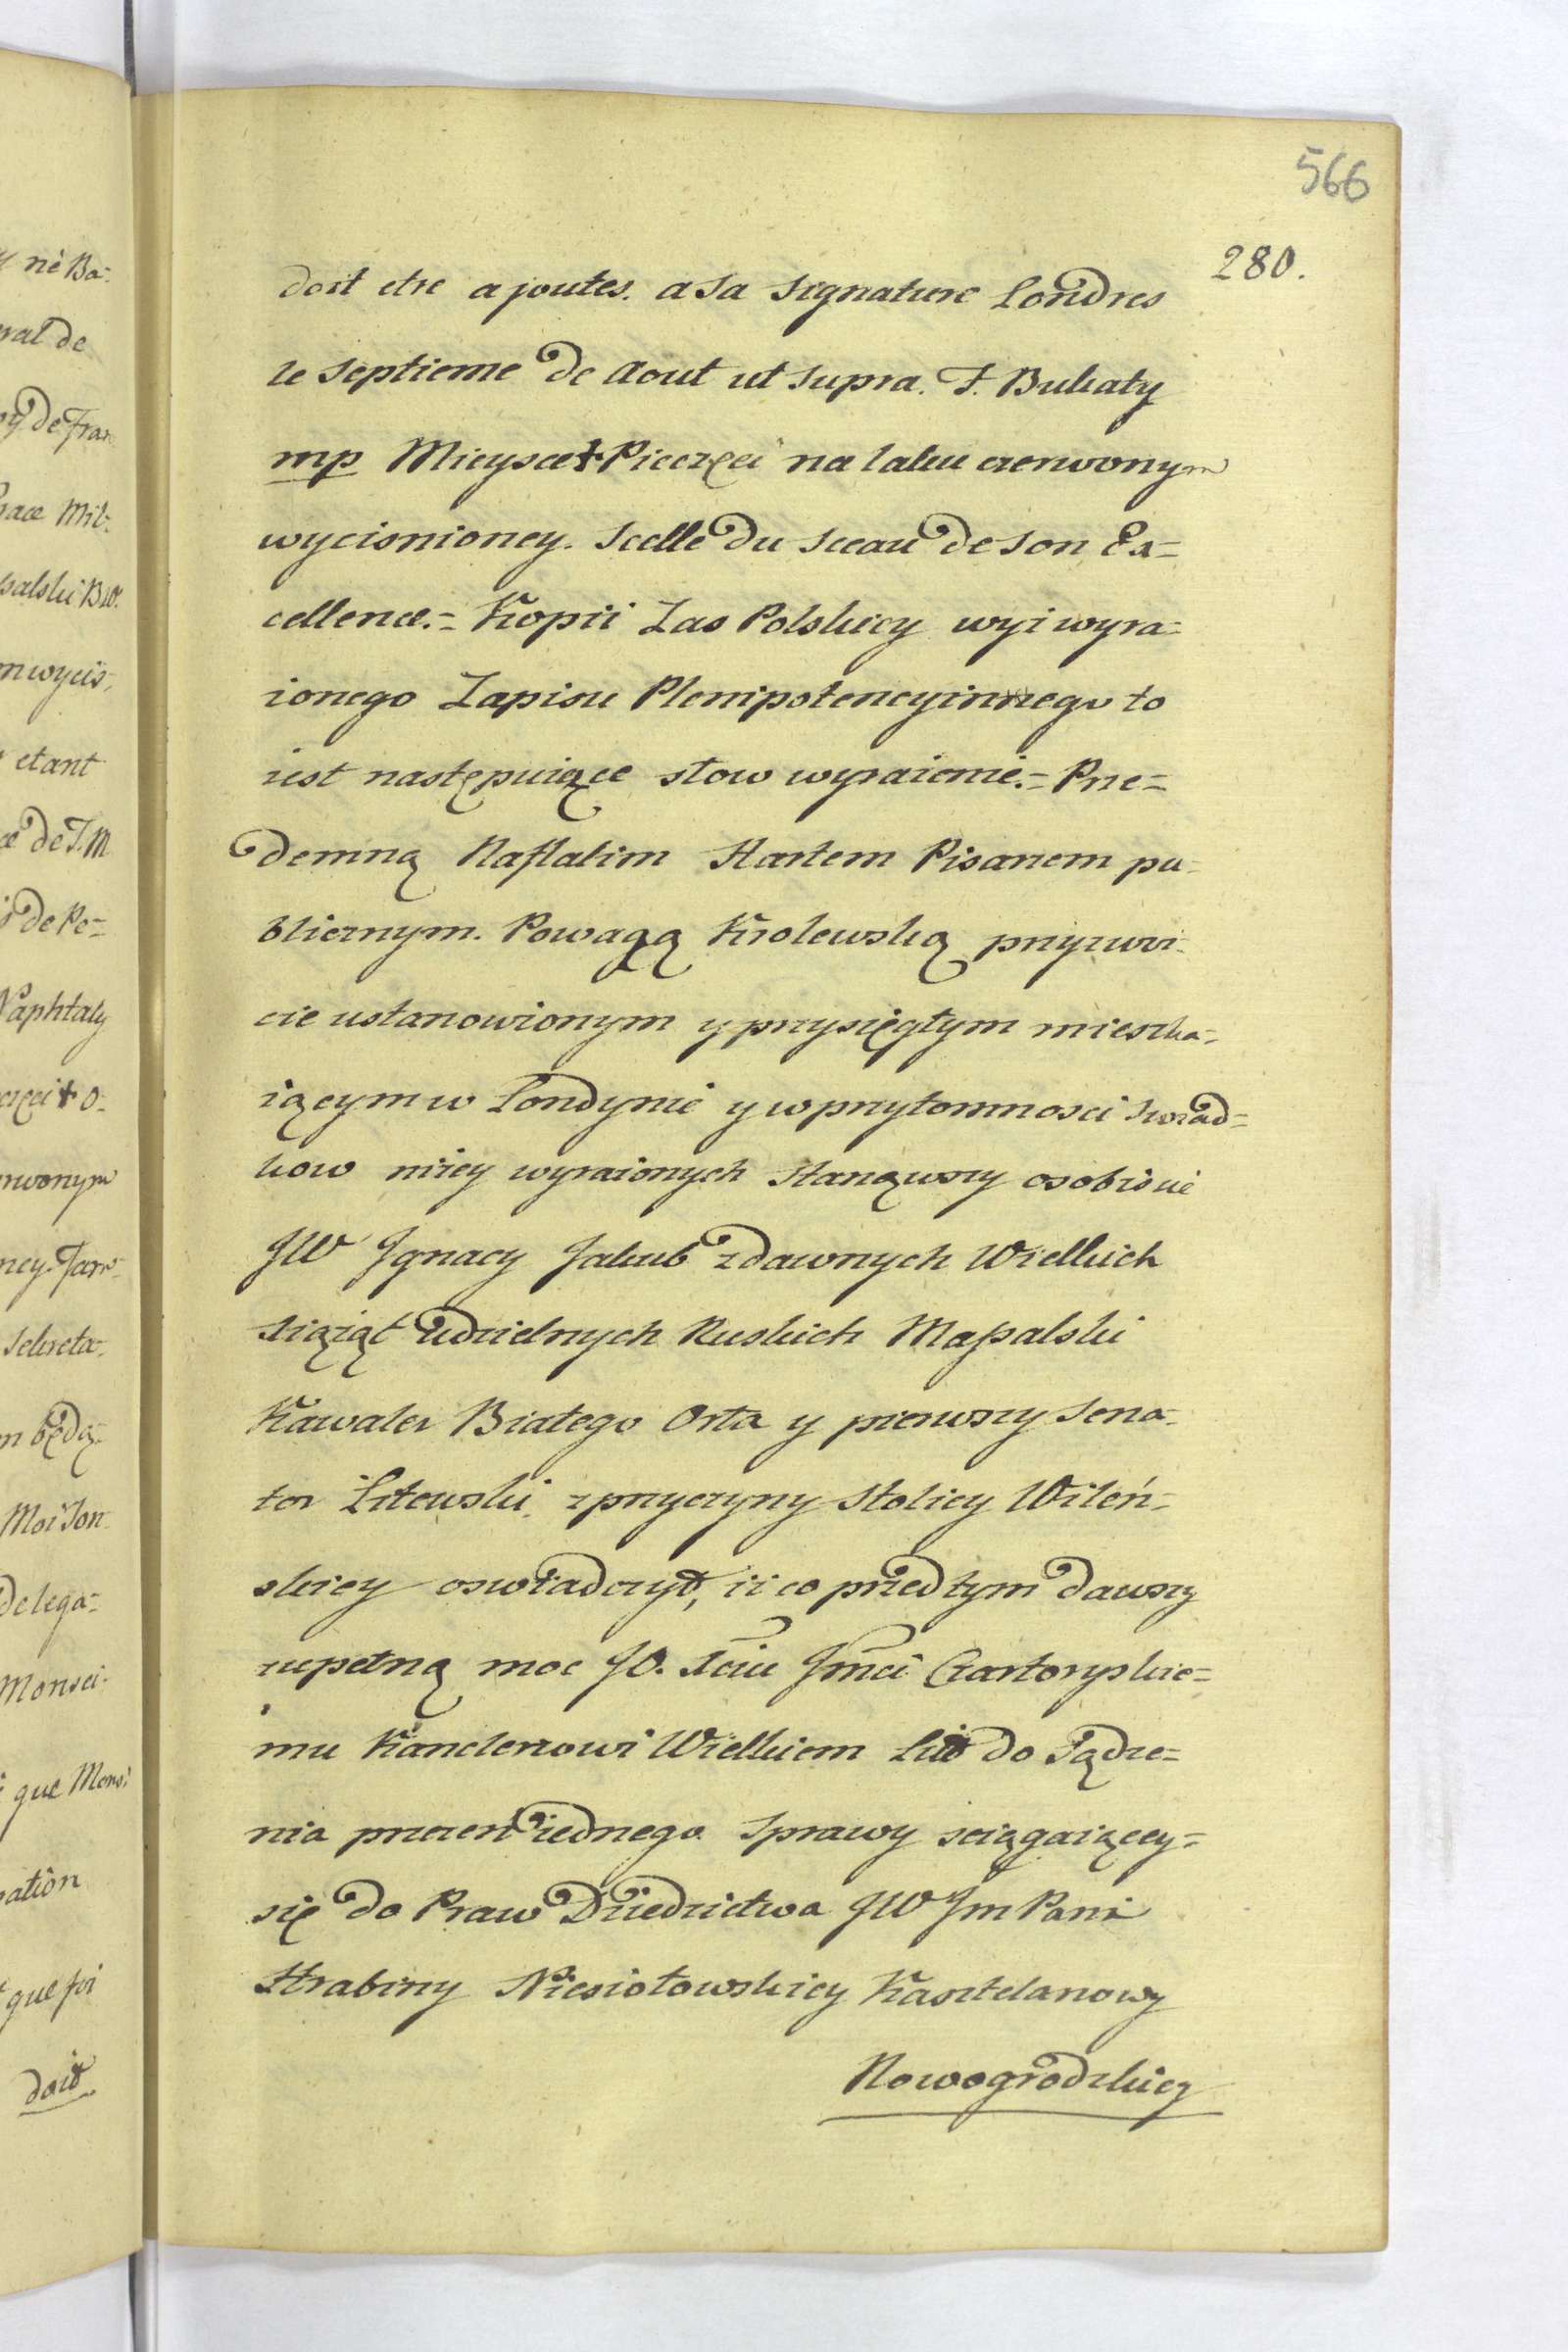 566
280.
doit etre ajoutes. a sa signature Londres
le septieme de Aout ut supra. F. Bukaty
mp Mieysce + Pieczęci na laku czerwonym
wycisnioney. Scellé du sceau de son Ex=
cellence.= Kopii Zas Polskiey wyż wyra=
żonego Zapisu Plenipotencyinnego to
iest następuiące słow wyrażenie.= Prze=
demną Naftalim Hartem Pisarzem pu-
blicznym. Powagą Krolewską przyzwoi-
cie ustanowionym y przysięgłym mieszka-
iącym w Londynie y w przytomnosci swiad=
kow niżey wyrażonych stanąwszy osobiscie
JW Jgnacy Jakub z dawnych Wielkich
Xiążąt Udzielnych Ruskich Massalski
Kawaler Białego Orła y pierwszy Sena-
tor Litewski z przyczyny Stolicy Wileń-
skiey oswiadczył, iż co przed tym dawszy
zupełną moc JO. Xciu Jmci Czartoryskie=
mu Kanclerzowi Wielkiem Litt do Sądze=
nia przezeń iednego sprawy sciągaiącey=
się do Praw Dziedzictwa JW Jm Pani
Hrabiny Niesiołowskiey Kasztelanowy
Nowogrodzkiey
né Ba-
ral de
y de Fran
Place Mil-
salski BW.
m wycis-
etant
ce de J. M
de Pe=
Naphtaly
częci + O-
rwonym
ney. Jaw-
sekreta-
m będą-
Moi Son
Delega=
Monsei-
que Monsi
ration
que foi
doit